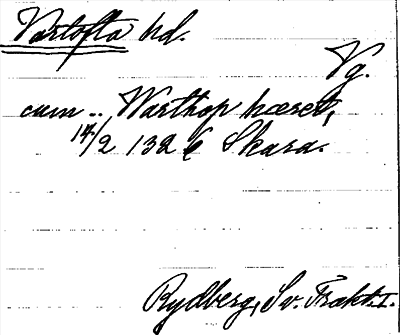 Vartofta hd.
Vg.
cum .. Warthop hæret,
14/2 1326 Skara.
Rydberg, Sv. Trakt. I.